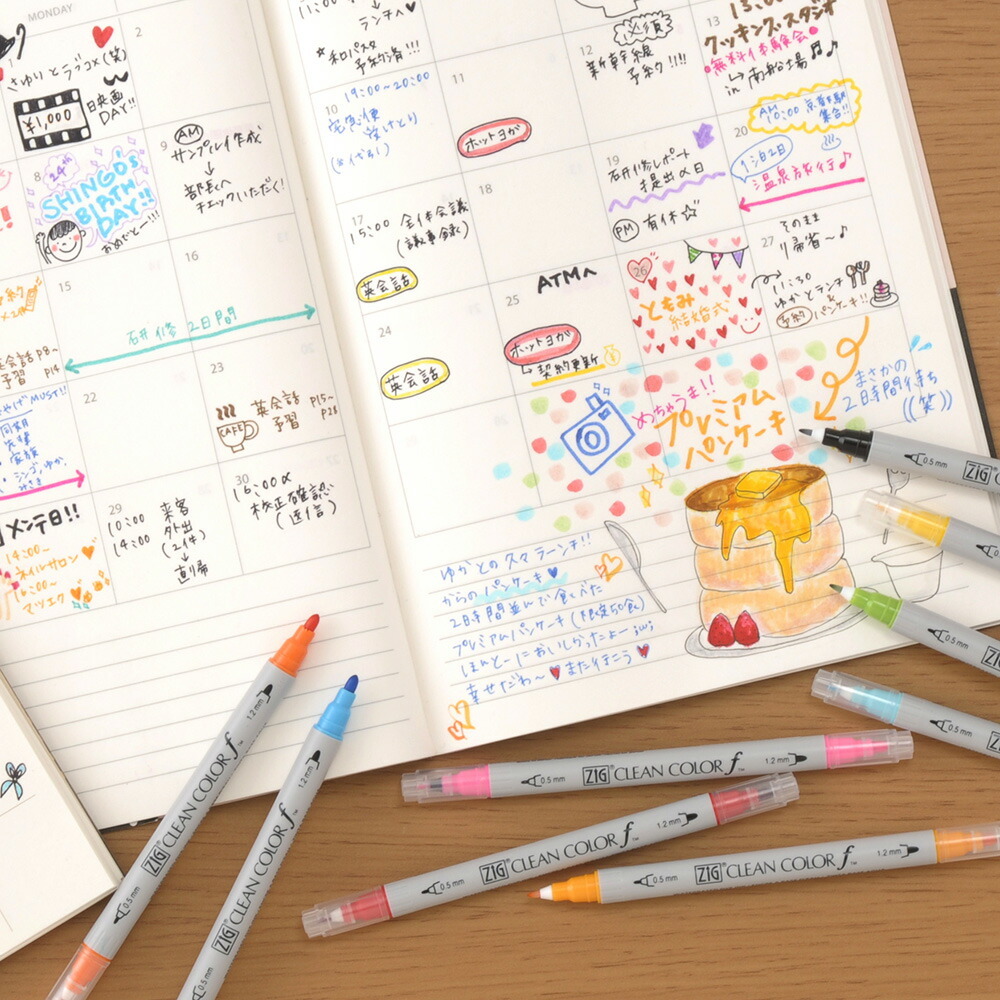 MONDAY
2
さゆりとラブコメ(笑)
¥1,000
映画
DAY!!
8
24th
SHINGO's
BIRTH
DAY!!
おめでとー!!!
9
AM
サンプル作成
↓
部長へ
チェックいただく!
15
16
石井修 2日間
英会話 P8~
予習 P14
22
23
CAFE
英会話 P15~
予習 P28
メンテ日!!
14:00~
ネイルサロン
16:00~
マツエク
29
10:00 来客
14:00 外出
(2件)
↓
直帰
30
16:00〆
校正確認
(返信)
11:00
ランチへ♥
★和パスタ
予約済!!!
10
19:00~20:00
宅急便
受けとり
11
ホットヨガ
12
必須
新幹線
予約!!!!
13
13:00
クッキングスタジオ
無料体験会
in 南船場♪♫
17
15:00 全体会議
(議事録)
英会話
18
19
石井修レポート
提出〆日
PM 有休☆
20
AM
10:00 京都駅
集合!!
1泊2日
温泉旅行♪
24
英会話
25
ATMへ
ホットヨガ
契約更新
26
ともみ
結婚式
27
そのまま
帰省~♪
11:30
ゆかとランチ
予約 パンケーキ!!
めちゃうま!!
プレミアム
パンケーキ
まさかの
2時間待ち
((笑))
ゆかとの久々ランチ!!
からのパンケーキ♥
2時間並んで食べた
プレミアムパンケーキ(限定50食)
ほんとーにおいしかったよー
幸せだわ~♥また行こう♥
0.5 mm ZIG
0.5 mm
0.5 mm
0.5 mm
0.5 mm ZIG CLEAN COLOR f 1.2 mm
0.5 mm ZIG CLEAN COLOR f 1.2 mm
0.5 mm ZIG CLEAN COLOR f 1.2 mm
0.5 mm ZIG CLEAN COLOR f 1.2 mm
0.5 mm ZIG CLEAN COLOR f 1.2 mm